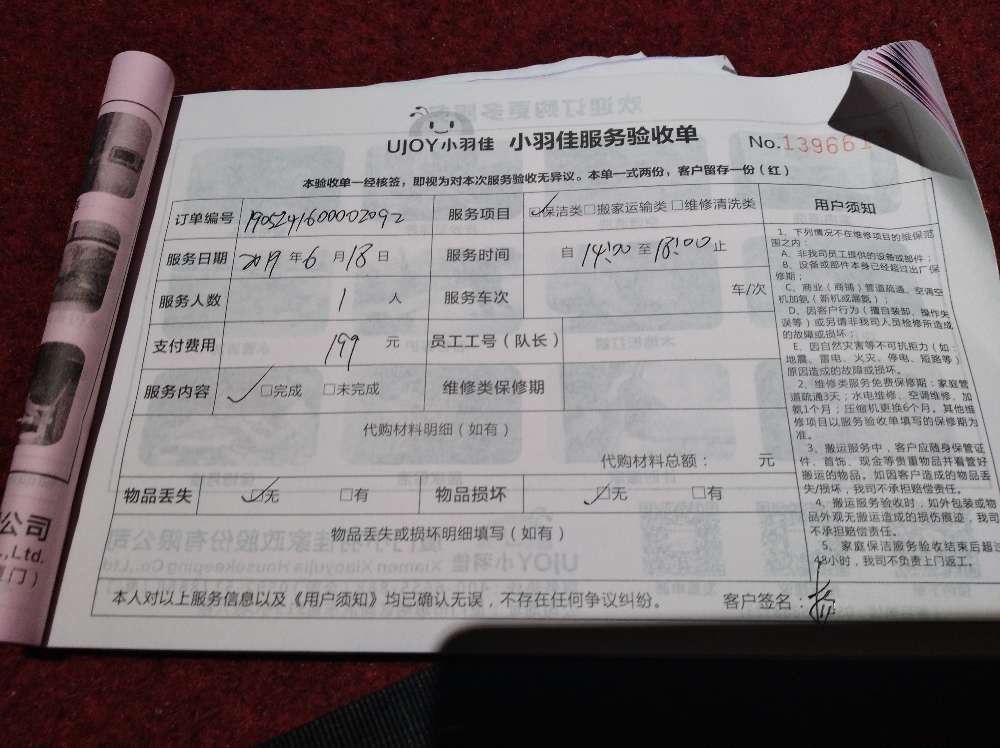 UJOY小羽佳 小羽佳服务验收单
No.139661
本验收单一经核签，即视为对本次服务验收无异议。本单一式两份，客户留存一份（红）
订单编号 1905241600002092 服务项目 ☑保洁类□搬家运输类□维修清洗类
服务日期 2019年6月18日 服务时间 自 14:00 至 18:00 止
服务人数 1 人 服务车次 车/次
支付费用 199 元 员工工号（队长）
服务内容 ☑完成 □未完成 维修类保修期
代购材料明细（如有）
代购材料总额： 元
物品丢失 ☑无 □有 物品损坏 ☑无 □有
物品丢失或损坏明细填写（如有）
本人对以上服务信息以及《用户须知》均已确认无误，不存在任何争议纠纷。 客户签名：
用户须知
1、下列情况不在维修项目的维保范
围之内：
A、非我司员工提供的设备或部件；
B、设备或部件本身已经超过出厂保
修期；
C、商业（商铺）管道疏通、空调空
机加氨（新机或漏氨）；
D、因客户行为（擅自装卸、操作失
误等）或另请非我司人员检修所造成
的故障或损坏；
E、因自然灾害等不可抗拒力（如：
地震、雷电、火灾、停电、短路等）
原因造成的故障或损坏。
2、维修类服务免费保修期：家庭管
道疏通3天；水电维修、空调维修、加
氨1个月；压缩机更换6个月。其他维
修项目以服务验收单填写的保修期为
准。
3、搬运服务中，客户应随身保管证
件、首饰、现金等贵重物品并看管好
搬运的物品。如因客户造成的物品丢
失/损坏，我司不承担赔偿责任。
4、搬运服务验收时，如外包装或物
品外观无搬运造成的损伤痕迹，我司
不承担赔偿责任。
5、家庭保洁服务验收结束后超过
48小时，我司不负责上门返工。
公司
.,Ltd.
门）